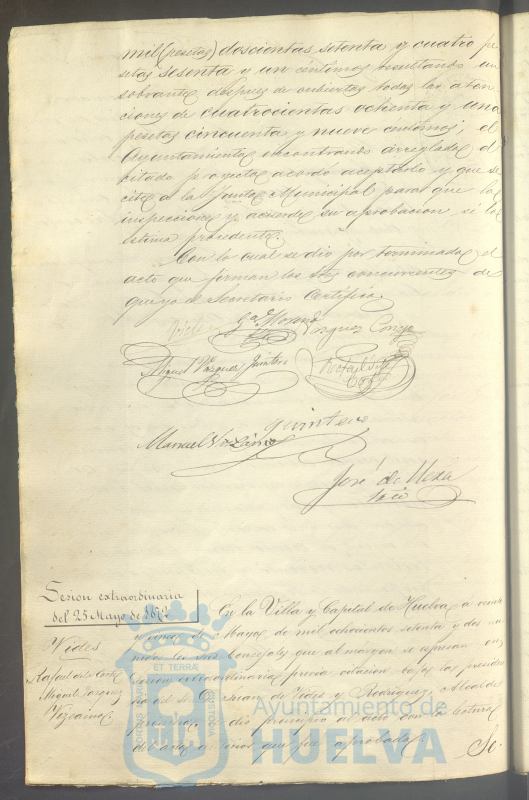 mil (pesetas) doscientas setenta y cuatro pe
setas sesenta y un centimos resultando un
sobrante despues de cubiertas todas las aten
ciones de cuatrocientas ochenta y una
pesetas cincuenta y nueve centimos; el
Ayuntamiento encontrando arreglado el
citado proyecto acordo aceptarlo y que se
cite a la Junta Municipal para que lo
inspeccione y acuerde su aprobacion, si lo
estima procedente.
Con lo cual se dio por terminado el
acto que forman los Sres concurrentes de
que yo el Secretario Certifico
Vides Vazquez
Miguel Vazquez Quintero Rafael
quintero
Manuel Vizcaino
José de Mesa
Srio
Sesion extraordinaria
del 25 Mayo de 1872
Vides
Rafael de la Corte
Miguel Vazquez
Vizcaino
En la Villa y Capital de Huelva á veinte
y cinco de Mayo de mil ochocientos setenta y dos
los Sres Concejales que al margen se espresan en
Sesion extraordinaria previa citacion bajo la presiden
cia del Sr D. Juan de Vides y Rodriguez, Alcalde
dio principio al acto con la lectura
del acta que fue aprobada.
Se
PORTUS MARIS ET TERRAE CUSTODIA
Ayuntamiento de
HUELVA